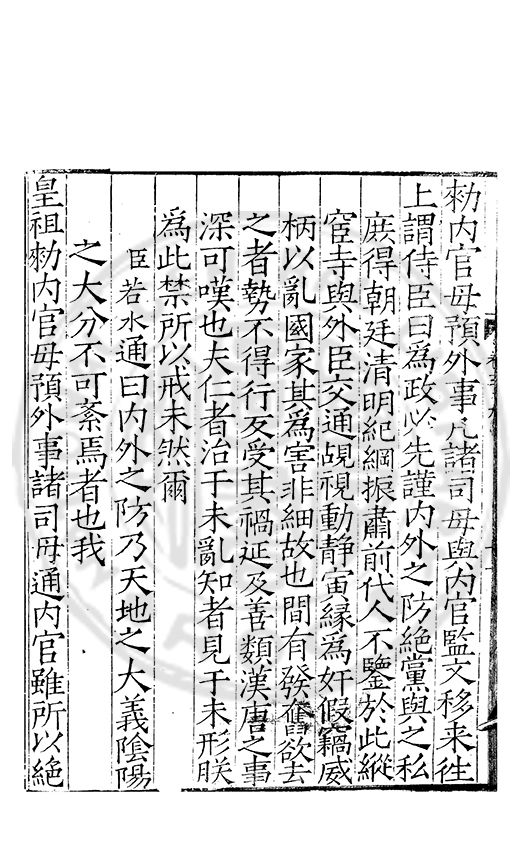 勑内官毋預外事凡諸司毋與内官監文移来徃
上謂侍臣曰爲政必先謹内外之防絶黨與之私
庻得朝廷清明紀綱振肅前代人不鑒於此縱
宦寺與外臣交通覘視動静寅縁爲奸假竊威
柄以亂國家其爲害非細故也間有發奮欲去
之者勢不得行反受其禍延及善類漢唐之事
深可嘆也夫仁者治于未亂知者見于未形朕
爲此禁所以戒未然爾
臣若水通曰内外之防乃天地之大義陰陽
之大分不可紊焉者也我
皇祖勑内官毋預外事諸司毋通内官雖所以絶